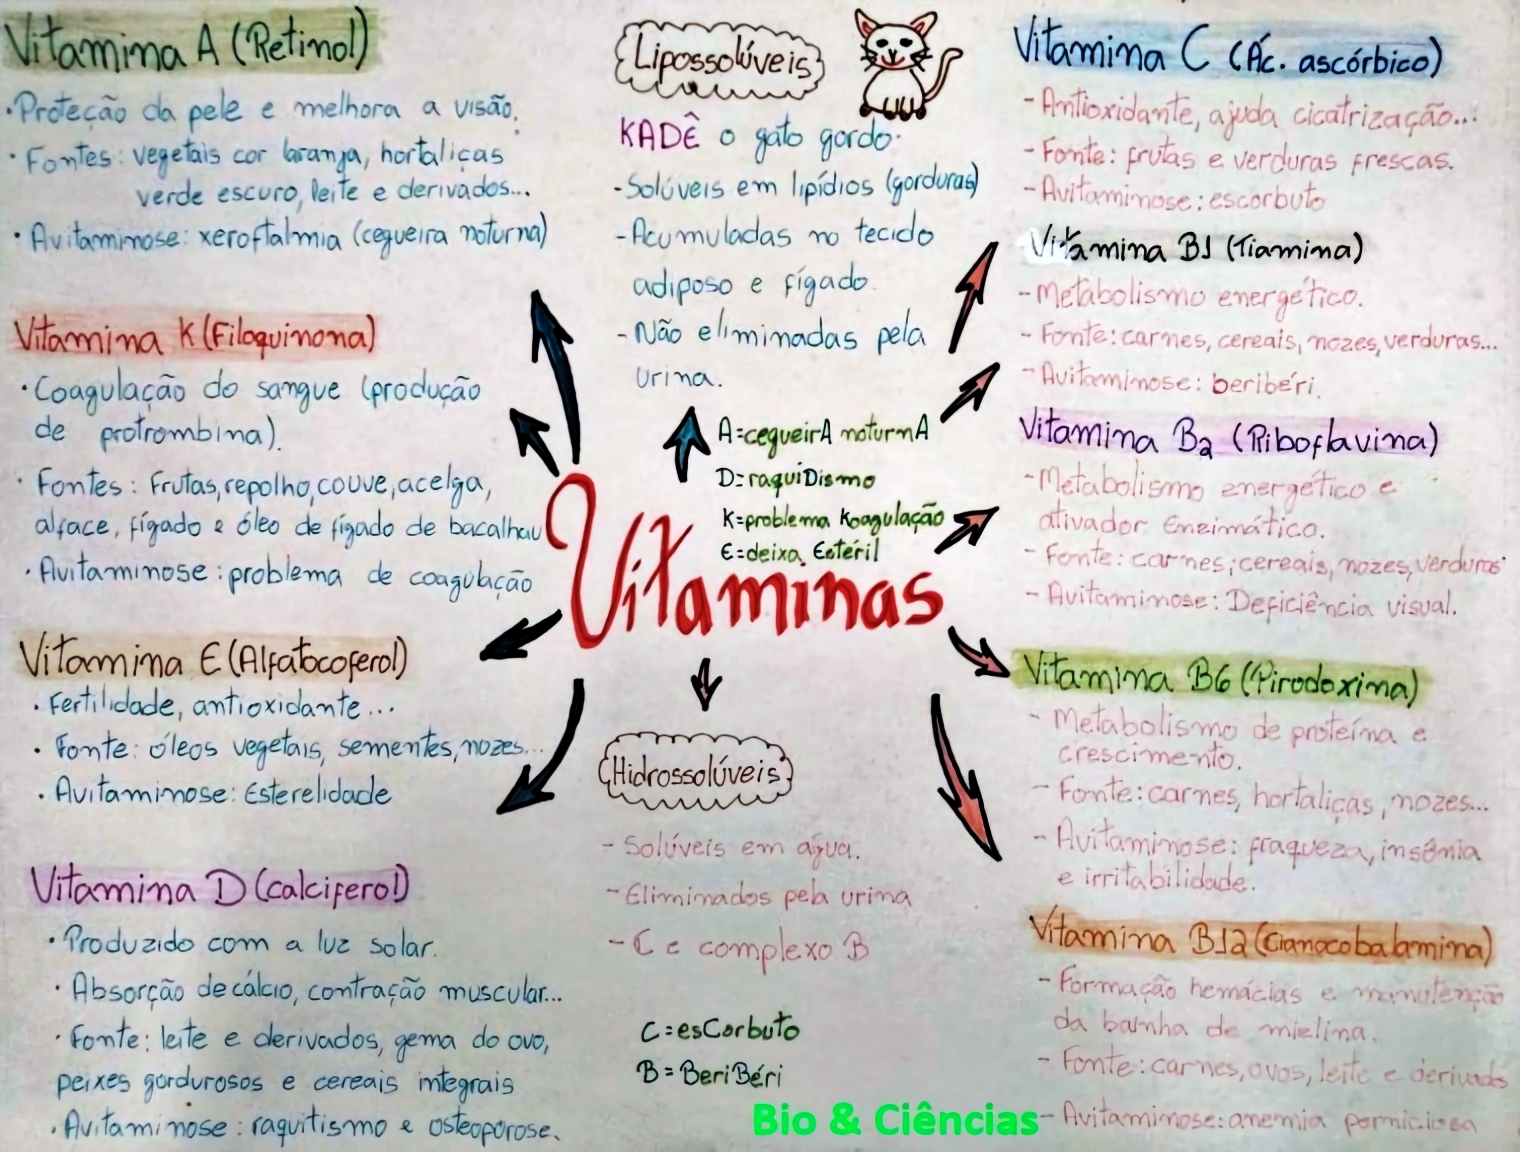 Vitamina A (Retinol)
• Proteção da pele e melhora a visão.
• Fontes: vegetais cor laranja, hortaliças
verde escuro, leite e derivados...
• Avitaminose: xeroftalmia (cegueira noturna)
Vitamina K (Filoquinona)
• Coagulação do sangue (produção
de protrombina).
• Fontes: Frutas, repolho, couve, acelga,
alface, fígado e óleo de fígado de bacalhau
• Avitaminose: problema de coagulação
Vitamina E (Alfatocoferol)
• Fertilidade, antioxidante...
• Fonte: óleos vegetais, sementes, nozes...
• Avitaminose: Esterelidade
Vitamina D (calciferol)
• Produzido com a luz solar.
• Absorção de cálcio, contração muscular...
• Fonte: leite e derivados, gema do ovo,
peixes gordurosos e cereais integrais
• Avitaminose: raquitismo e osteoporose.
Lipossolúveis
KADÊ o gato gordo.
- Solúveis em lipídios (gorduras)
- Acumuladas no tecido
adiposo e fígado.
- Não eliminadas pela
urina.
A=cegueirA noturnA
D=raquiDismo
K=problema Koagulação
E=deixa Estéril
Vitaminas
Hidrossolúveis
- Solúveis em água.
- Eliminados pela urina
- C e complexo B
C=esCorbuto
B=BeriBéri
Bio & Ciências
Vitamina C (Ác. ascórbico)
- Antioxidante, ajuda cicatrização...
- Fonte: frutas e verduras frescas.
- Avitaminose: escorbuto
Vitamina B1 (Tiamina)
- Metabolismo energético.
- Fonte: carnes, cereais, nozes, verduras...
- Avitaminose: beribéri.
Vitamina B2 (Riboflavina)
- Metabolismo energético e
ativador Enzimático.
- Fonte: carnes, cereais, nozes, verduras
- Avitaminose: Deficiência visual.
Vitamina B6 (Pirodoxina)
- Metabolismo de proteína e
crescimento.
- Fonte: carnes, hortaliças, nozes...
- Avitaminose: fraqueza, insônia
e irritabilidade.
Vitamina B12 (Cianocobalamina)
- Formação hemácias e manutenção
da bainha de mielina.
- Fonte: carnes, ovos, leite e derivados
- Avitaminose: anemia perniciosa